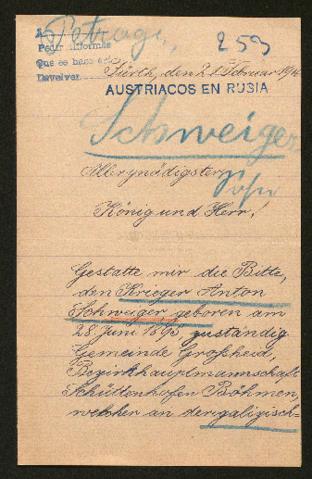 A
Petrograd
259
Pedir informes
Que se hace
Devolver
Fürth, den 21. Februar 191
AUSTRIACOS EN RUSIA
Schweiger
Allergnädigster
König und Herr!
Gestatte mir die Bitte,
den Krieger Anton
Schweiger geboren am
28. Juni 1895 zuständig
Gemeinde Großheid,
Bezirkhauptmannschaft
Schüttenhofen Böhmen,
welcher an der galizisch-